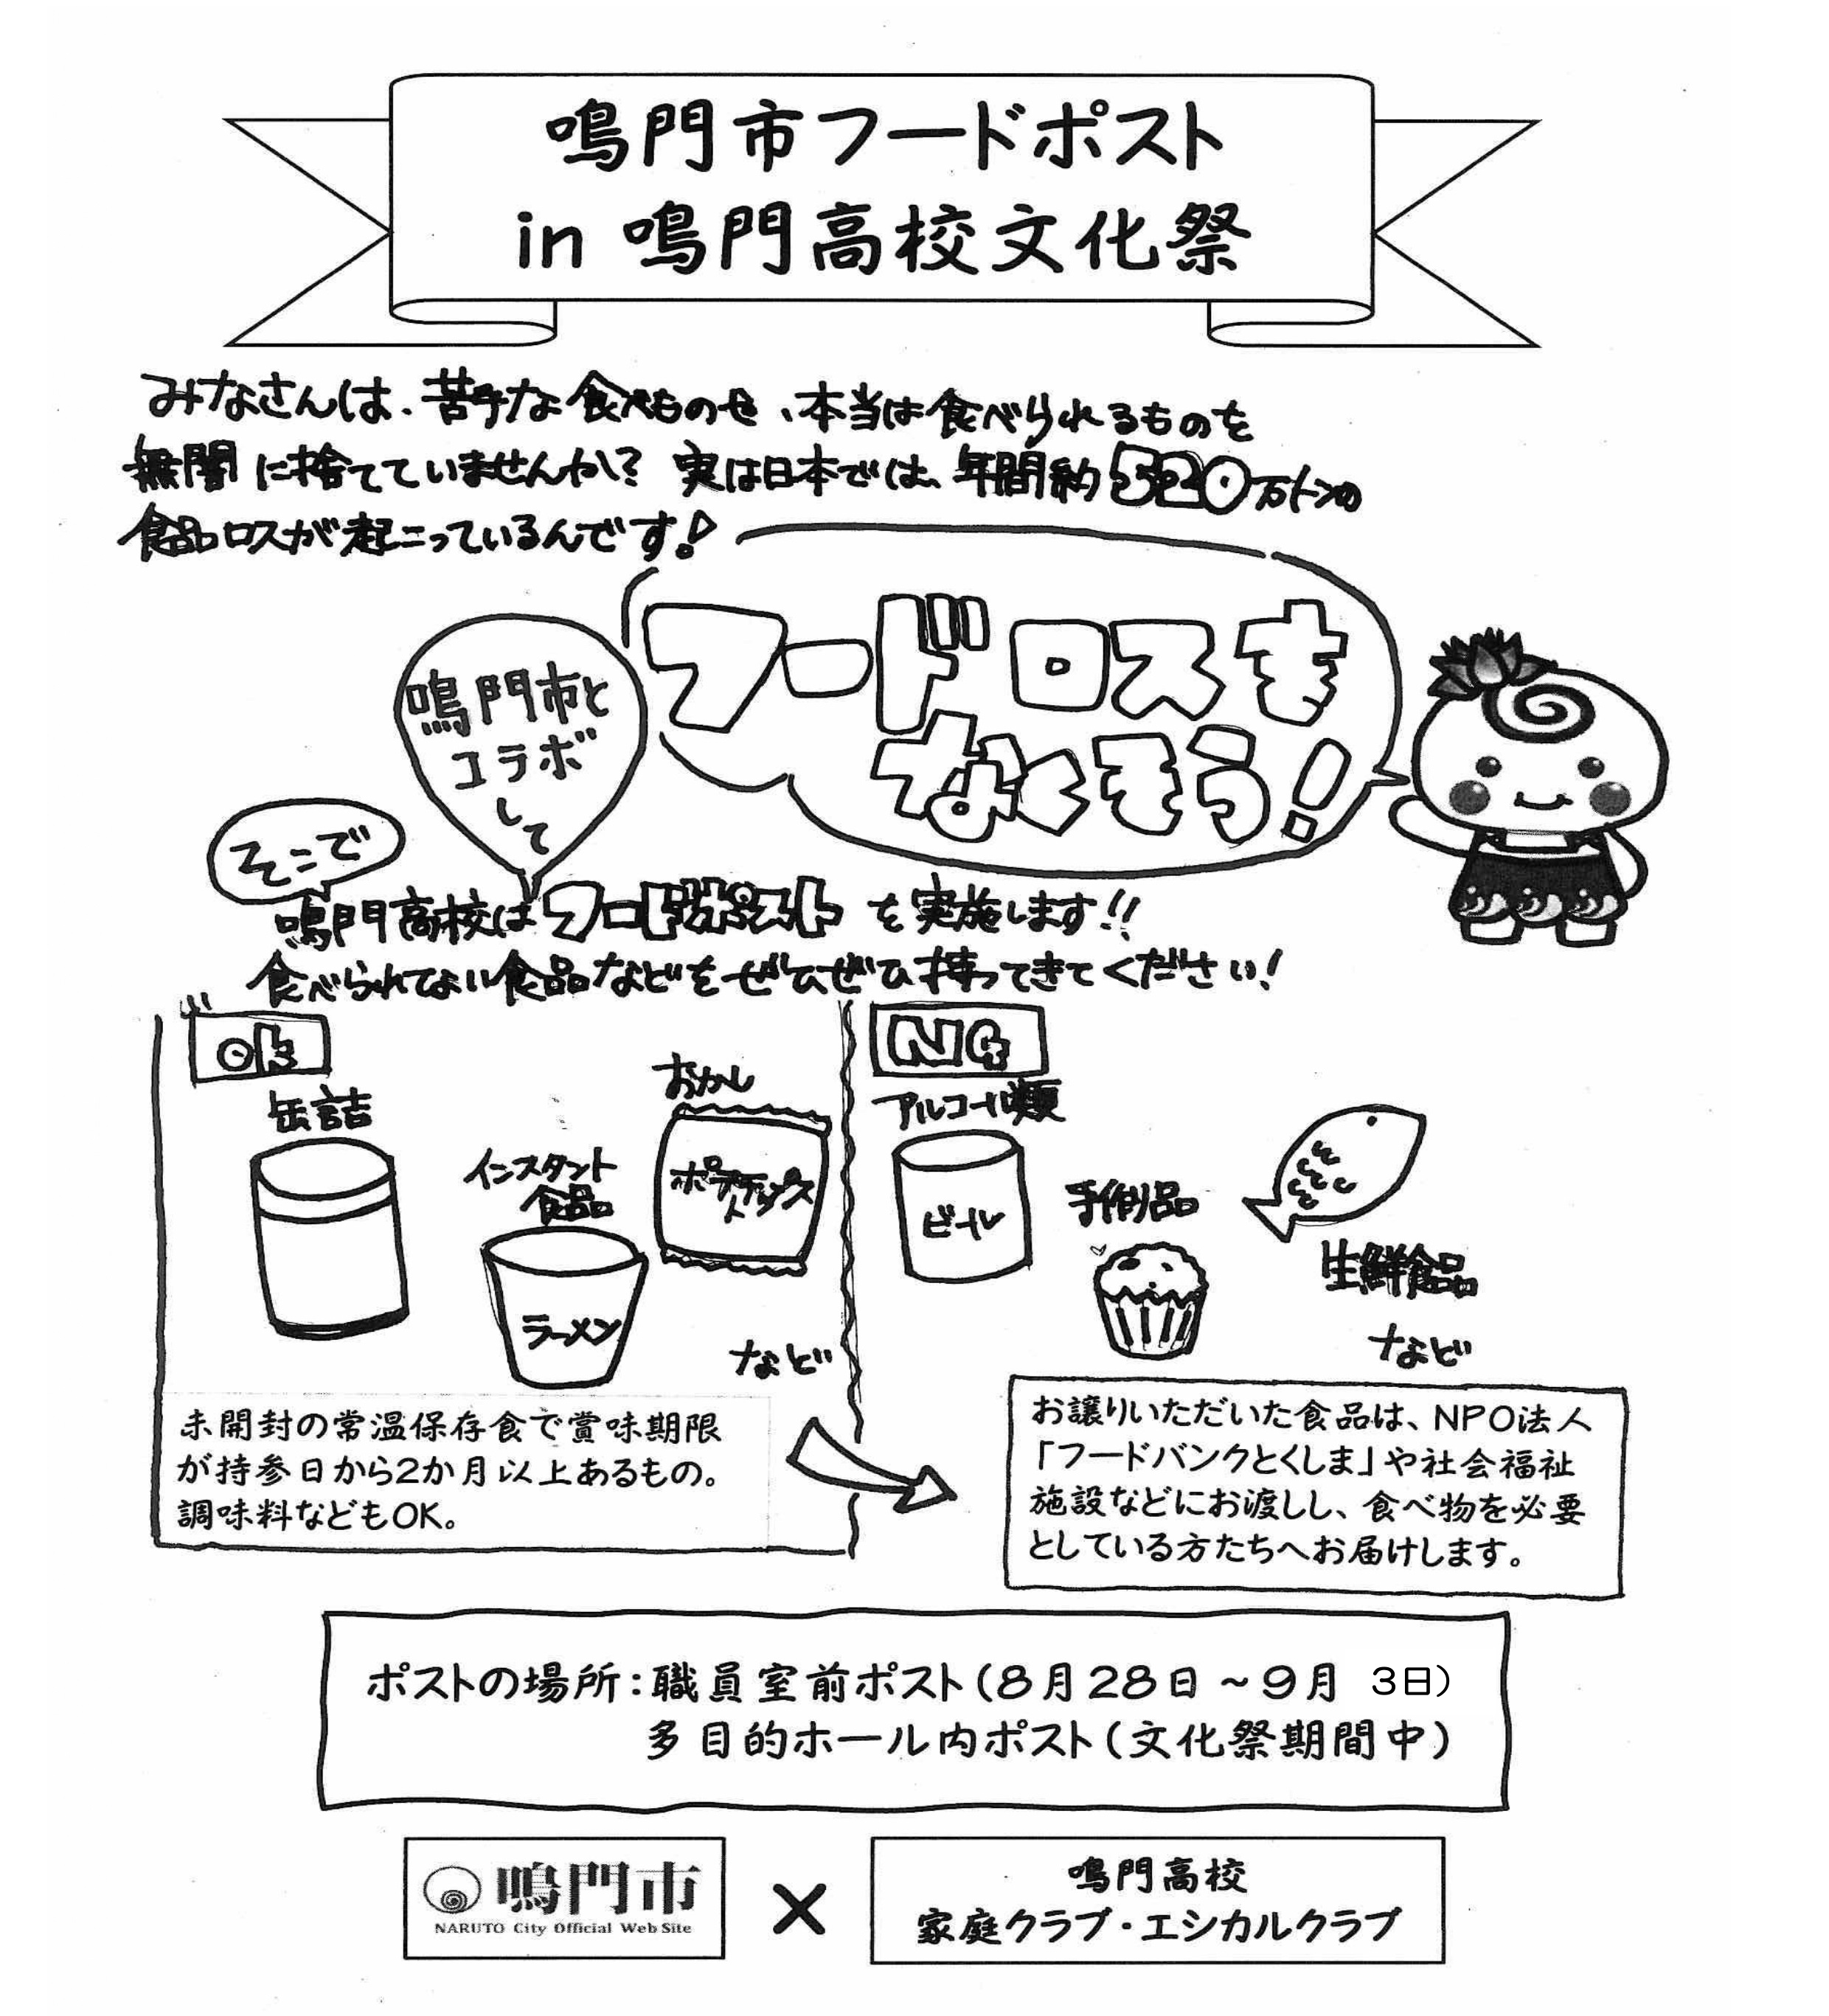 鳴門市フードポスト
in 鳴門高校文化祭
みなさんは、苦手な食べものや、本当は食べられるものを
無闇に捨てていませんか？実は日本では、年間約520万トンの
食品ロスが起こっているんです！
フードロスを
なくそう！
鳴門市と
コラボ
して
そこで
鳴門高校はフードポストを実施します!!
食べられてない食品などをぜひぜひ持ってきてください！
OK
缶詰
インスタント
食品
ラーメン
おかし
ポテト
チップス
など
未開封の常温保存食で賞味期限
が持参日から2か月以上あるもの。
調味料などもOK。
NG
アルコール類
ビール
手作り品
生鮮食品
など
お譲りいただいた食品は、NPO法人
「フードバンクとくしま」や社会福祉
施設などにお渡しし、食べ物を必要
としている方たちへお届けします。
ポストの場所：職員室前ポスト（8月28日～9月 3日）
多目的ホール内ポスト（文化祭期間中）
鳴門市
NARUTO City Official Web Site
×
鳴門高校
家庭クラブ・エシカルクラブ